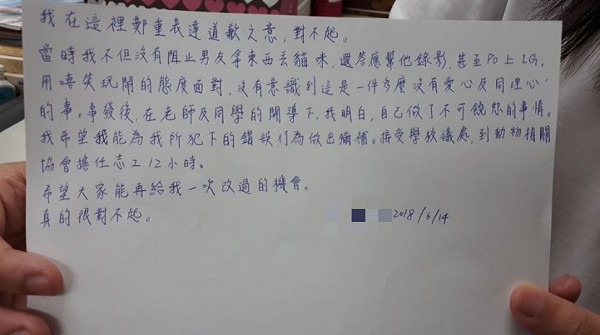 我在這裡鄭重表達道歉之意,對不起。
當時我不但沒有阻止男友拿東西丟貓咪,還答應幫他錄影,甚至Po上IG,
用嘻笑玩鬧的態度面對,沒有意識到這是一件多麼沒有愛心及同理心
的事。事發後,在老師及同學的開導下,我明白,自己做了不可饒恕的事情。
我希望我能為我所犯下的錯誤行為做出彌補。接受學校議處,到動物相關
協會擔任志工12小時。
希望大家能再給我一次改過的機會。
真的很對不起。
2018/6/14